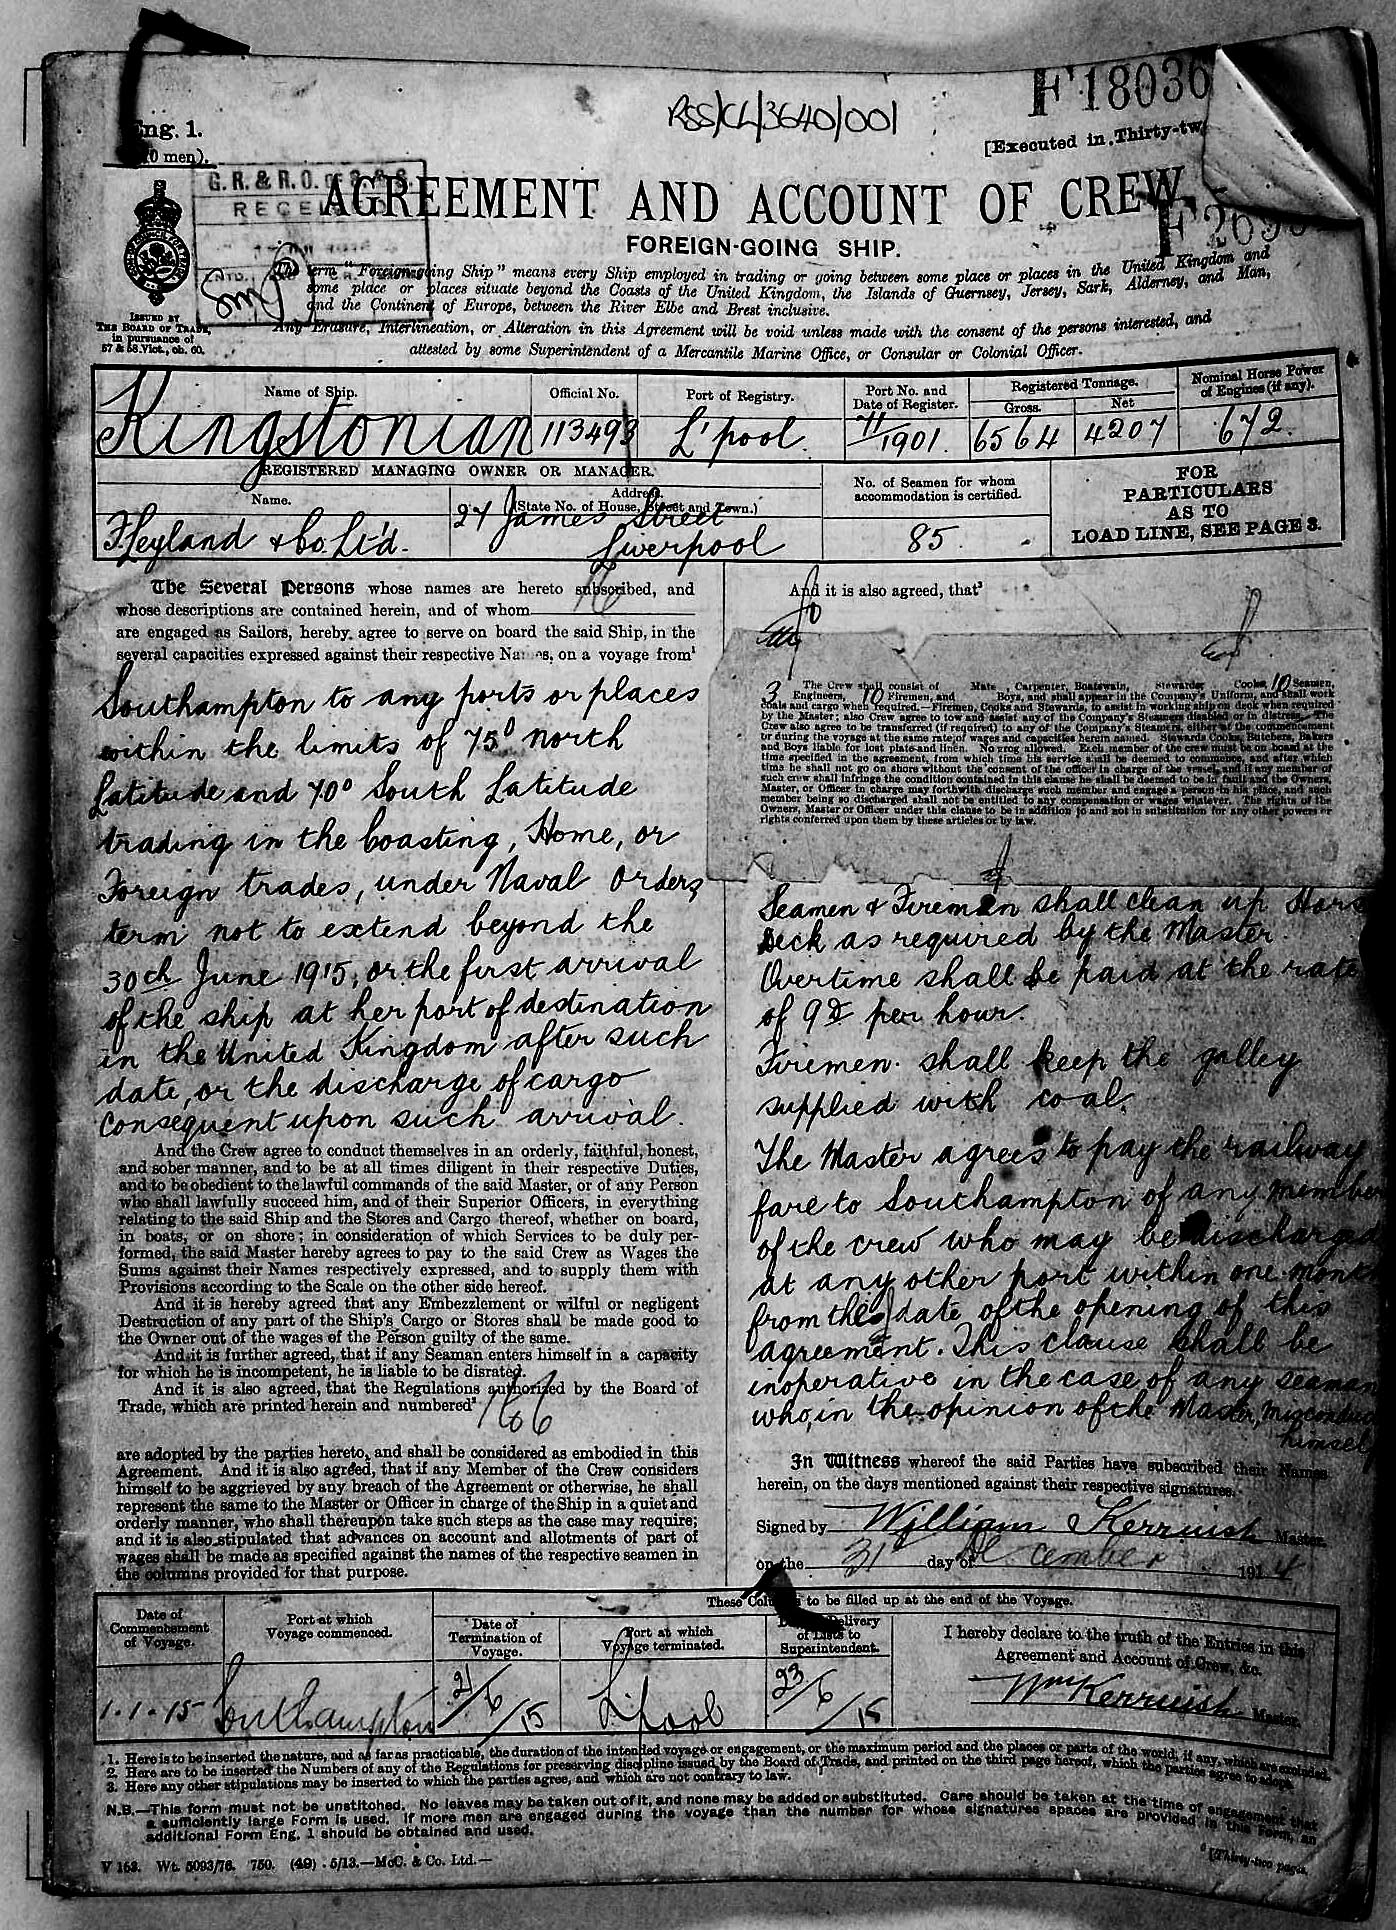 RSS/CL/3640/001
F 18036
Eng. 1.
[Executed in Thirty-tw
0 men).
G. R. & R. O. OF S. & S.
AGREEMENT AND ACCOUNT OF CREW.
F 269
FOREIGN-GOING SHIP.
The term "Foreign-going Ship" means every Ship employed in trading or going between some place or places in the United Kingdom and
some place or places situate beyond the Coasts of the United Kingdom, the Islands of Guernsey, Jersey, Sark, Alderney, and Man,
and the Continent of Europe, between the River Elbe and Brest inclusive.
Any Erasure, Interlineation, or Alteration in this Agreement will be void unless made with the consent of the persons interested, and
attested by some Superintendent of a Mercantile Marine Office, or Consular or Colonial Officer.
ISSUED BY
THE BOARD OF TRADE,
in pursuance of
57 & 58 Vict., ch. 60.
Name of Ship.
Kingstonian
Official No.
113493
Port of Registry.
L'pool.
Port No. and
Date of Register.
71/1901.
Registered Tonnage.
Gross.
6564
Net
4207
Nominal Horse Power
of Engines (if any).
672
REGISTERED MANAGING OWNER OR MANAGER.
Name.
F Leyland & Co. Lt'd.
Address.
(State No. of House, Street and Town.)
27 James Street
Liverpool
No. of Seamen for whom
accommodation is certified.
85.
FOR
PARTICULARS
AS TO
LOAD LINE, SEE PAGE 3.
The Several Persons whose names are hereto subscribed, and
whose descriptions are contained herein, and of whom 16
are engaged as Sailors, hereby agree to serve on board the said Ship, in the
several capacities expressed against their respective Names, on a voyage from¹
Southampton to any ports or places
within the limits of 75° north
Latitude and 70° South Latitude
trading in the Coasting, Home, or
Foreign trades, under Naval Orders,
term not to extend beyond the
30th June 1915, or the first arrival
of the ship at her port of destination
in the United Kingdom after such
date, or the discharge of cargo
consequent upon such arrival.
And the Crew agree to conduct themselves in an orderly, faithful, honest,
and sober manner, and to be at all times diligent in their respective Duties,
and to be obedient to the lawful commands of the said Master, or of any Person
who shall lawfully succeed him, and of their Superior Officers, in everything
relating to the said Ship and the Stores and Cargo thereof, whether on board,
in boats, or on shore; in consideration of which Services to be duly per-
formed, the said Master hereby agrees to pay to the said Crew as Wages the
Sums against their Names respectively expressed, and to supply them with
Provisions according to the Scale on the other side hereof.
And it is hereby agreed that any Embezzlement or wilful or negligent
Destruction of any part of the Ship's Cargo or Stores shall be made good to
the Owner out of the wages of the Person guilty of the same.
And it is further agreed, that if any Seaman enters himself in a capacity
for which he is incompetent, he is liable to be disrated.
And it is also agreed, that the Regulations authorized by the Board of
Trade, which are printed herein and numbered²
are adopted by the parties hereto, and shall be considered as embodied in this
Agreement. And it is also agreed, that if any Member of the Crew considers
himself to be aggrieved by any breach of the Agreement or otherwise, he shall
represent the same to the Master or Officer in charge of the Ship in a quiet and
orderly manner, who shall thereupon take such steps as the case may require;
and it is also stipulated that advances on account and allotments of part of
wages shall be made as specified against the names of the respective seamen in
the columns provided for that purpose.
And it is also agreed, that³
The Crew shall consist of Mate, Carpenter, Boatswain, Stewards, Cooks, 10 Seamen,
3 Engineers, 10 Firemen, and Boys, and shall appear in the Company's Uniform, and shall work
coals and cargo when required.—Firemen, Cooks and Stewards, to assist in working ship on deck when required
by the Master; also Crew agree to tow and assist any of the Company's Steamers disabled or in distress. The
Crew also agree to be transferred (if required) to any of the Company's Steamers, either at the commencement
or during the voyage at the same rate of wages and capacities herein named. Stewards Cooks, Butchers, Bakers
and Boys liable for lost plate and linen. No grog allowed. Each member of the crew must be on board at the
time specified in the agreement, from which time his service shall be deemed to commence, and after which
time he shall not go on shore without the consent of the officer in charge of the vessel, and if any member of
such crew shall infringe the condition contained in this clause he shall be deemed to be in fault and the Owners,
Master, or Officer in charge may forthwith discharge such member and engage a person in his place, and such
member being so discharged shall not be entitled to any compensation or wages whatever. The rights of the
Owners, Master or Officer under this clause to be in addition to and not in substitution for any other powers or
rights conferred upon them by these articles or by law.
Seamen & Firemen shall clean up Hors
Deck as required by the Master.
Overtime shall be paid at the rate
of 9d per hour.
Firemen shall keep the galley
supplied with coal.
The Master agrees to pay the railway
fare to Southampton of any membe
of the crew who may be discharged
at any other port within one month
from the date of the opening of this
agreement. This clause shall be
inoperative in the case of any seaman
who, in the opinion of the Master, misconduc
himself
In Witness whereof the said Parties have subscribed their Names
herein, on the days mentioned against their respective signatures.
Signed by William Kerruish Master.
on the 31 day of December 1914
These Columns to be filled up at the end of the Voyage.
Date of
Commencement
of Voyage.
1.1.15
Port at which
Voyage commenced.
Southampton
Date of
Termination of
Voyage.
21/6/15
Port at which
Voyage terminated.
L'pool
Delivery
of Lists to
Superintendent.
23/6/15
I hereby declare to the truth of the Entries in this
Agreement and Account of Crew, &c.
Wm Kerruish Master.
1. Here is to be inserted the nature, and as far as practicable, the duration of the intended voyage or engagement, or the maximum period and the places or parts of the world, if any, which are excluded.
2. Here are to be inserted the Numbers of any of the Regulations for preserving discipline issued by the Board of Trade, and printed on the third page hereof, which the parties agree to adopt.
3. Here any other stipulations may be inserted to which the parties agree, and which are not contrary to law.
N.B.—This form must not be unstitched. No leaves may be taken out of it, and none may be added or substituted. Care should be taken at the time of engagement that
a sufficiently large Form is used. If more men are engaged during the voyage than the number for whose signatures spaces are provided in this Form, an
additional Form Eng. 1 should be obtained and used.
V 153. Wt. 5093/76. 750. (49). 5/13.—McC. & Co. Ltd.—
[Thirty-two pages.